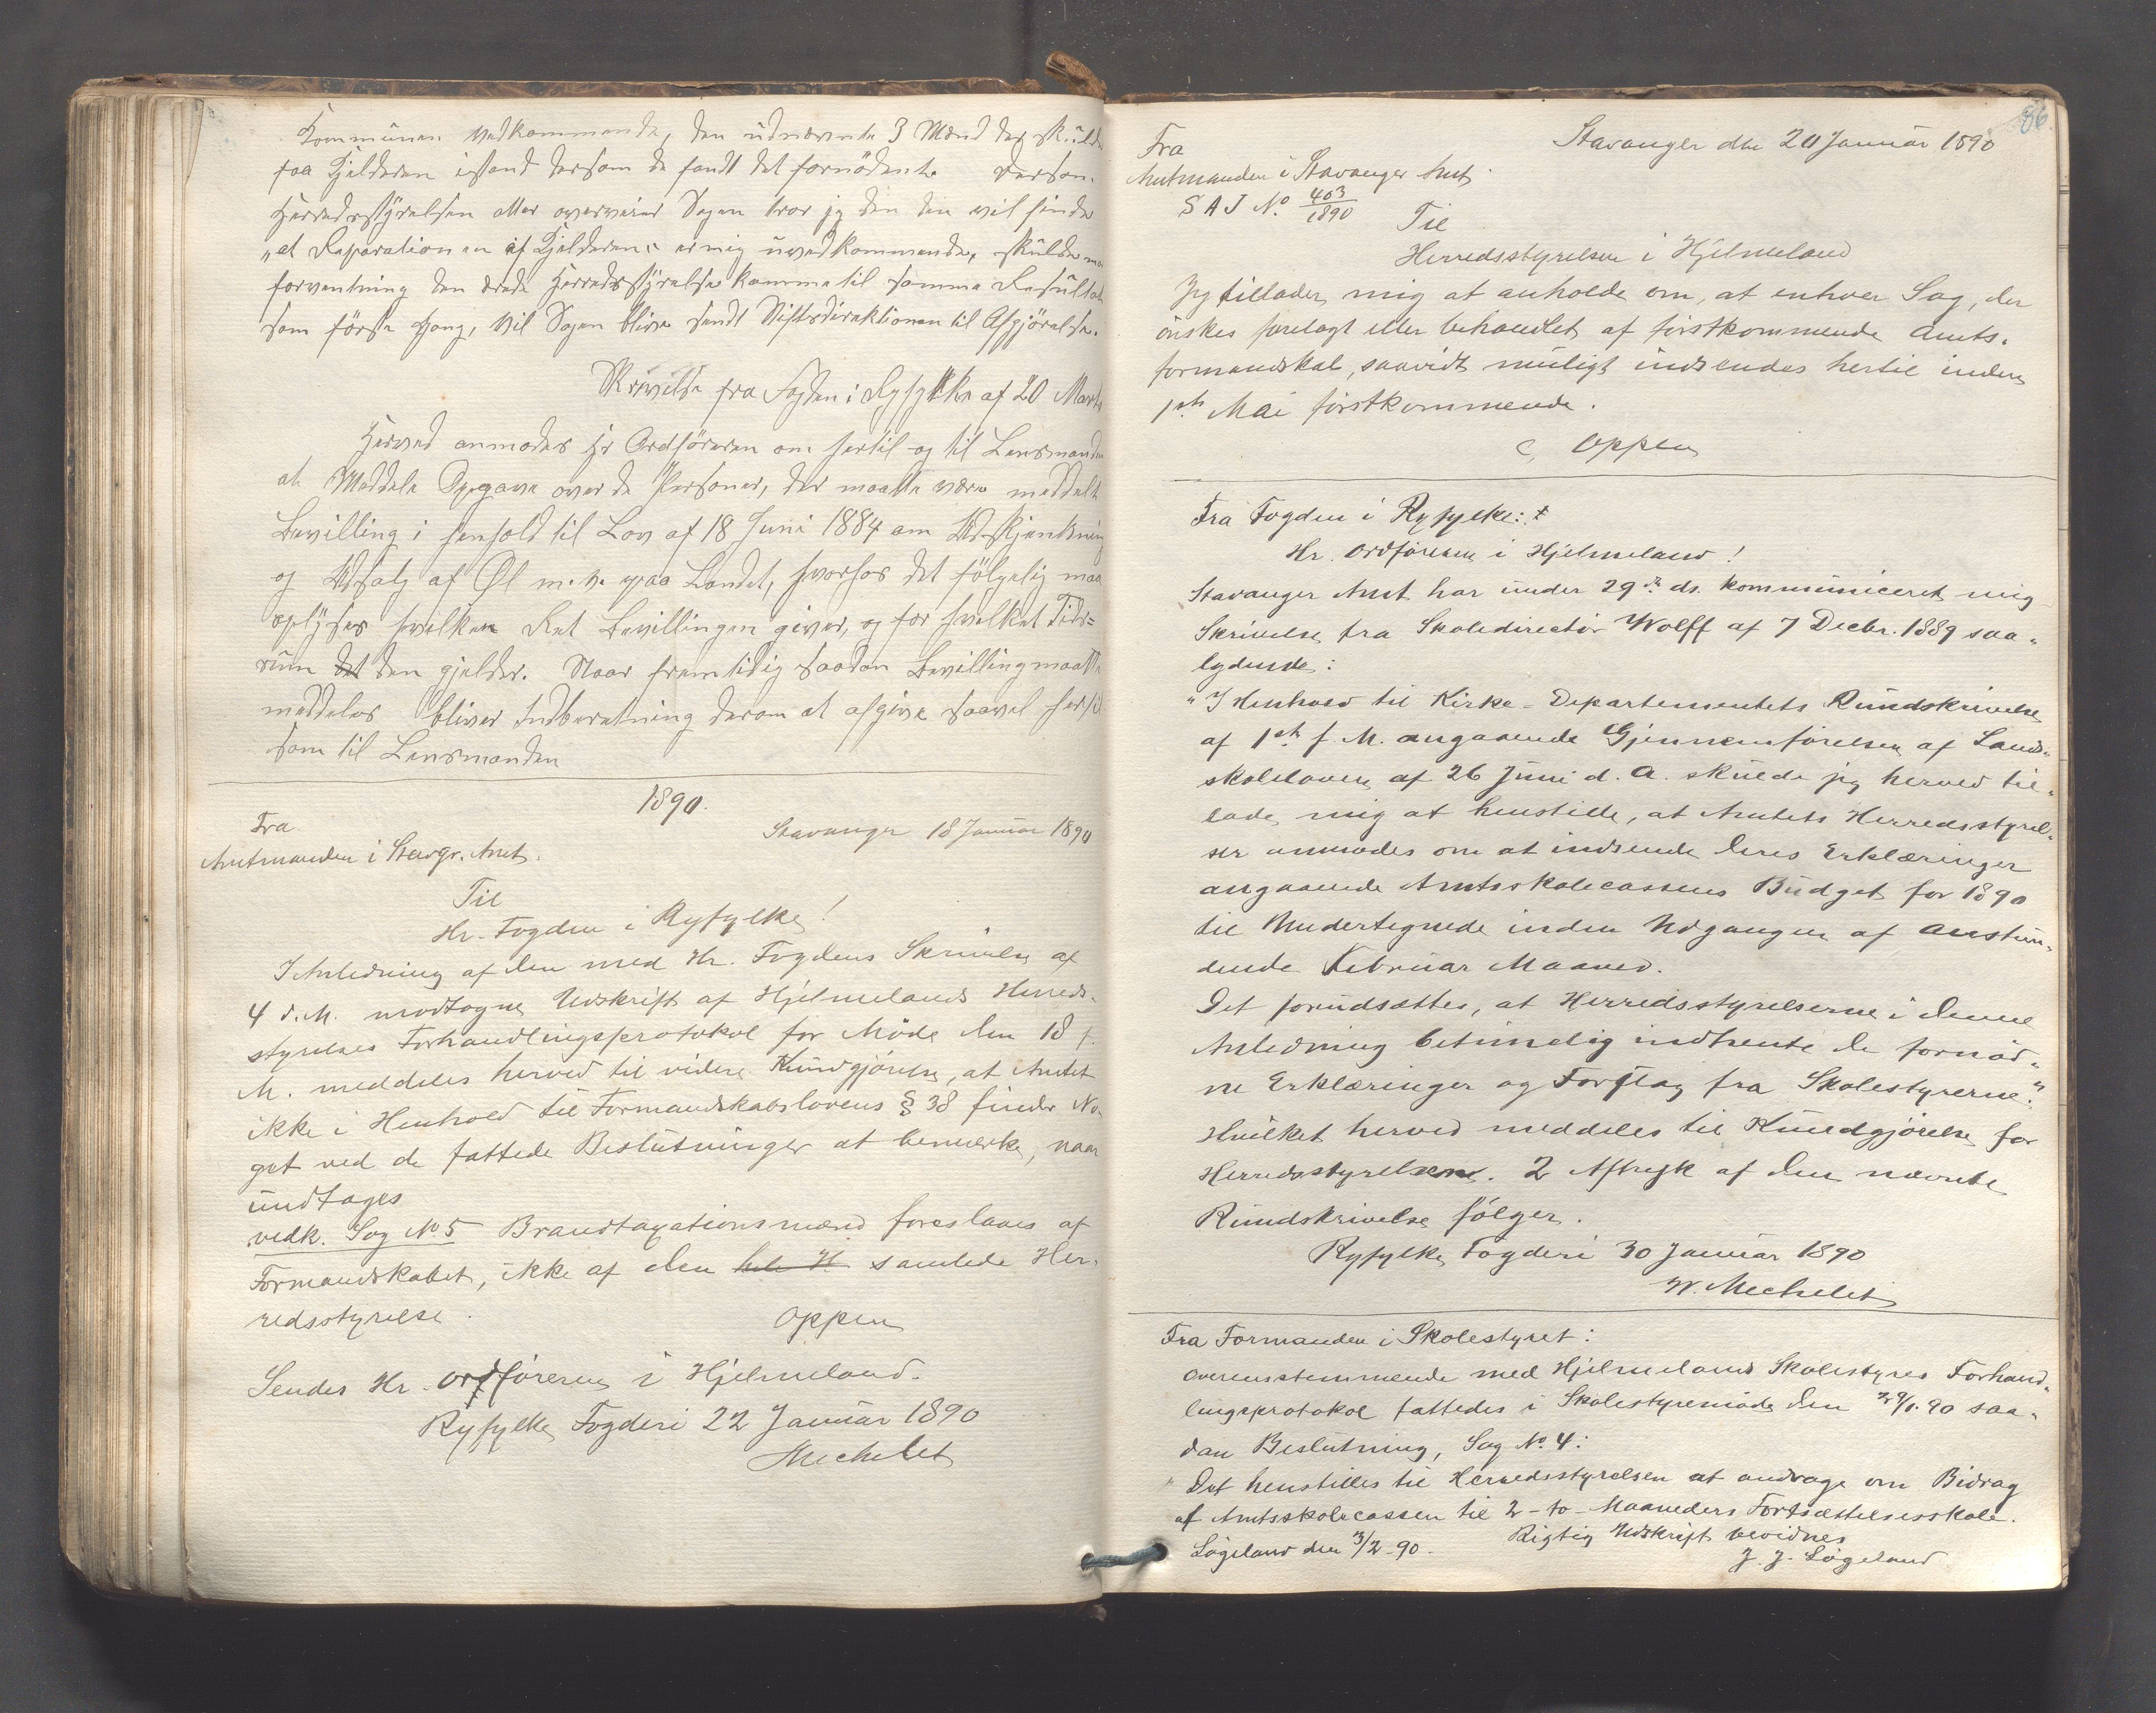 Kommunen vedkommende, den udnævnte 3 Mænd der skulde
faa Kjelderen istand dersom de fandt det fornødent. Dersom
Herredsstyrelsen atter overveier Sagen tror jeg den den vil finde
"at Reparationen af Kjelderen" er mig uvedkommende, skulde mo
forventning den ærede Herredsstyrelse komme til samme Resultat
som første Gang, vil Sagen blive sendt Stiftsdirektionen til Afgjørelse.
Skrivelse fra Fogden i Ryfylke af 20 Marts
Herved anmodes Hr Ordføreren om hertil og til Lensmanden
at Meddele Opgave over de Personer, der maatte være meddelt
Bevilling i henhold til Lov af 18 Juni 1884 om Udskjenkning
og Udsalg af Øl m.v. paa Landet, hvorhos det følgelig maa
oplyses hvilken Ret Bevillingen giver, og for hvilket Tids=
rum det den gjelder. Naar fremtidig saadan Bevilling maatte
meddeles bliver Indberetning derom at afgive saavel hertil
som til Lensmanden
1890.
Fra
Stavanger 18 Januar 1890
Amtmanden i Stavgr. Amt.
Til
Hr. Fogden i Ryfylke!
I Anledning af den med Hr. Fogdens Skrivelse af
4 d. M. modtagne Udskrift af Hjelmelands Herreds-
styrelses Forhandlingsprotokol for Møde den 18 f.
M. meddeles herved til videre Kundgjørelse, at Amtet
ikke i Henhold til Formandskabslovens § 38 finder No-
get ved de fattede Beslutninger at bemærke, naar
undtages
vedk. Sag No. 5 Brandtaxationsmænd foreslaaes af
Formandskabet, ikke af den hele H samlede Her-
redsstyrelse.
Oppen
Sendes Hr. Ordføreren i Hjelmeland.
Ryfylke Fogderi 22 Januar 1890
Mechelet
86
Stavanger den 20 Januar 1890
Fra
Amtmanden i Stavanger Amt.
S A J No. 403/1890
Til
Herredsstyrelsen i Hjelmeland
Jeg tillader mig at anholde om, at enhver Sag, der
ønskes forelagt eller behandlet af førstkommende Amts-
formandskab, saavidt muligt indsendes hertil inden
1ste Mai førstkommende.
C, Oppen
Fra Fogden i Ryfylke:
Hr. Ordføreren i Hjelmeland!
Stavanger Amt har under 29de ds. kommuniceret mig
Skrivelse fra Skoledirectør Wolff af 7 Decbr. 1889 saa-
lydende:
"I Henhold til Kirke-Departementets Rundskrivelse
af 1ste f. M. angaaende Gjennemførelsen af Lands-
skoleloven af 26 Juni d. A. skulde jeg herved til-
lade mig at henstille, at Amtets Herredsstyrel-
ser anmodes om at indsende deres Erklæringer
angaaende Amtsskolecassens Budget for 1890
til Undertegnede inden Udgangen af anstun-
dende Februar Maaned.
Det forudsættes, at Herredsstyrelserne i denne
Anledning betimelig indhente de fornød-
ne Erklæringer og Forslag fra Skolestyrerne."
Hvilket herved meddeles til Kundgjørelse for
Herredsstyrelsen. 2 Aftryk af den nævnte
Rundskrivelse følger.
Ryfylke Fogderi 30 Januar 1890
W. Mechelet
Fra Formanden i Skolestyret:
Overensstemmende med Hjelmelands Skolestyres Forhand-
lingsprotokol fattedes i Skolestyremøde den 29/1. 90 saa-
dan Beslutning, Sag No. 4:
"Det henstilles til Herredsstyrelsen at andrage om Bidrag
af Amtsskolecassen til 2-to-Maaneders Fortsættelsesskole.
Løgeland den 3/2-90. Rigtig Udskrift bevidnes
J. J. Løgeland